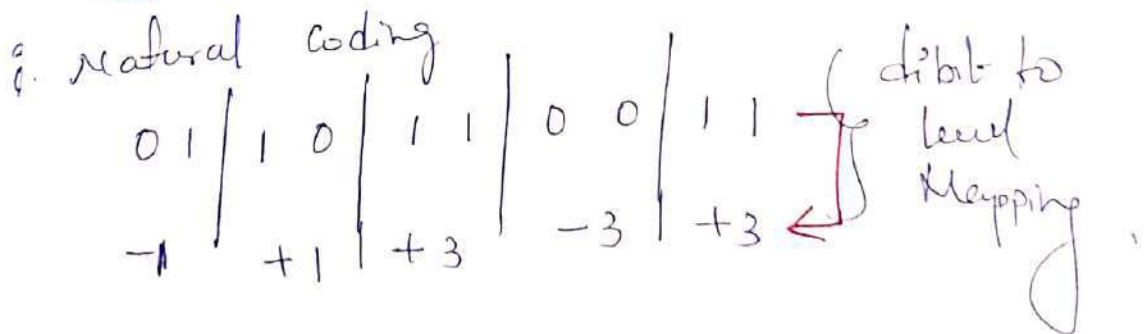 i. Natural Coding
0 1 | 1 0 | 1 1 | 0 0 | 1 1
-1 +1 | +3 | -3 | +3
dibit to
level
Mapping.